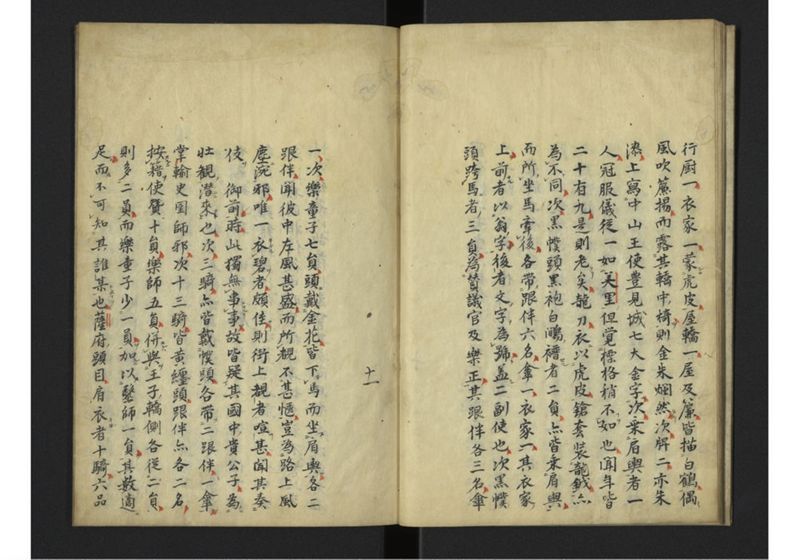 行厨一衣家一蒙虎皮屋轎一屋及簾皆描白鶴偶
風吹簾揚而露其轎中椅則金朱烟然次牌二亦朱
漆上寫中山王使豊見城七大金字次乗肩輿者一
人冠服儀従一如美里但覚標格稍不如也聞年皆
二十有九是則老矣龍刀衣以虎皮鎗套装龍鉞亦
為不同次黒幞頭黒袍白鷴禮者二負亦皆乗肩輿
而所坐馬牽後各帯跟伴六名傘一衣家一其衣家
上前者以翁字後者文字為號盖二副使也次黒幞
頭跨馬者三負為賛議官及樂正其跟伴各三名傘
一次樂童子七負頭戴金花皆下馬而坐肩輿各二
跟伴聞彼中左風甚盛而所覩不甚愜豈為路上風
塵涴邪唯一衣碧者頗佳則街上観者喧甚聞其奏
伎御前時此獨無事事故皆疑其國中貴公子為
壮観潜来也次三騎亦皆戴幞頭各帯二跟伴一傘
掌翰史圉師邪次十三騎皆黄纏頭跟伴亦各二名
按籍使賛十負樂師五負併與王子轎側各従二負
則多二負而樂童子少一負加以醫師一負其数適
足而不可知其誰某也薩府頭目肩衣者十騎六品
十一